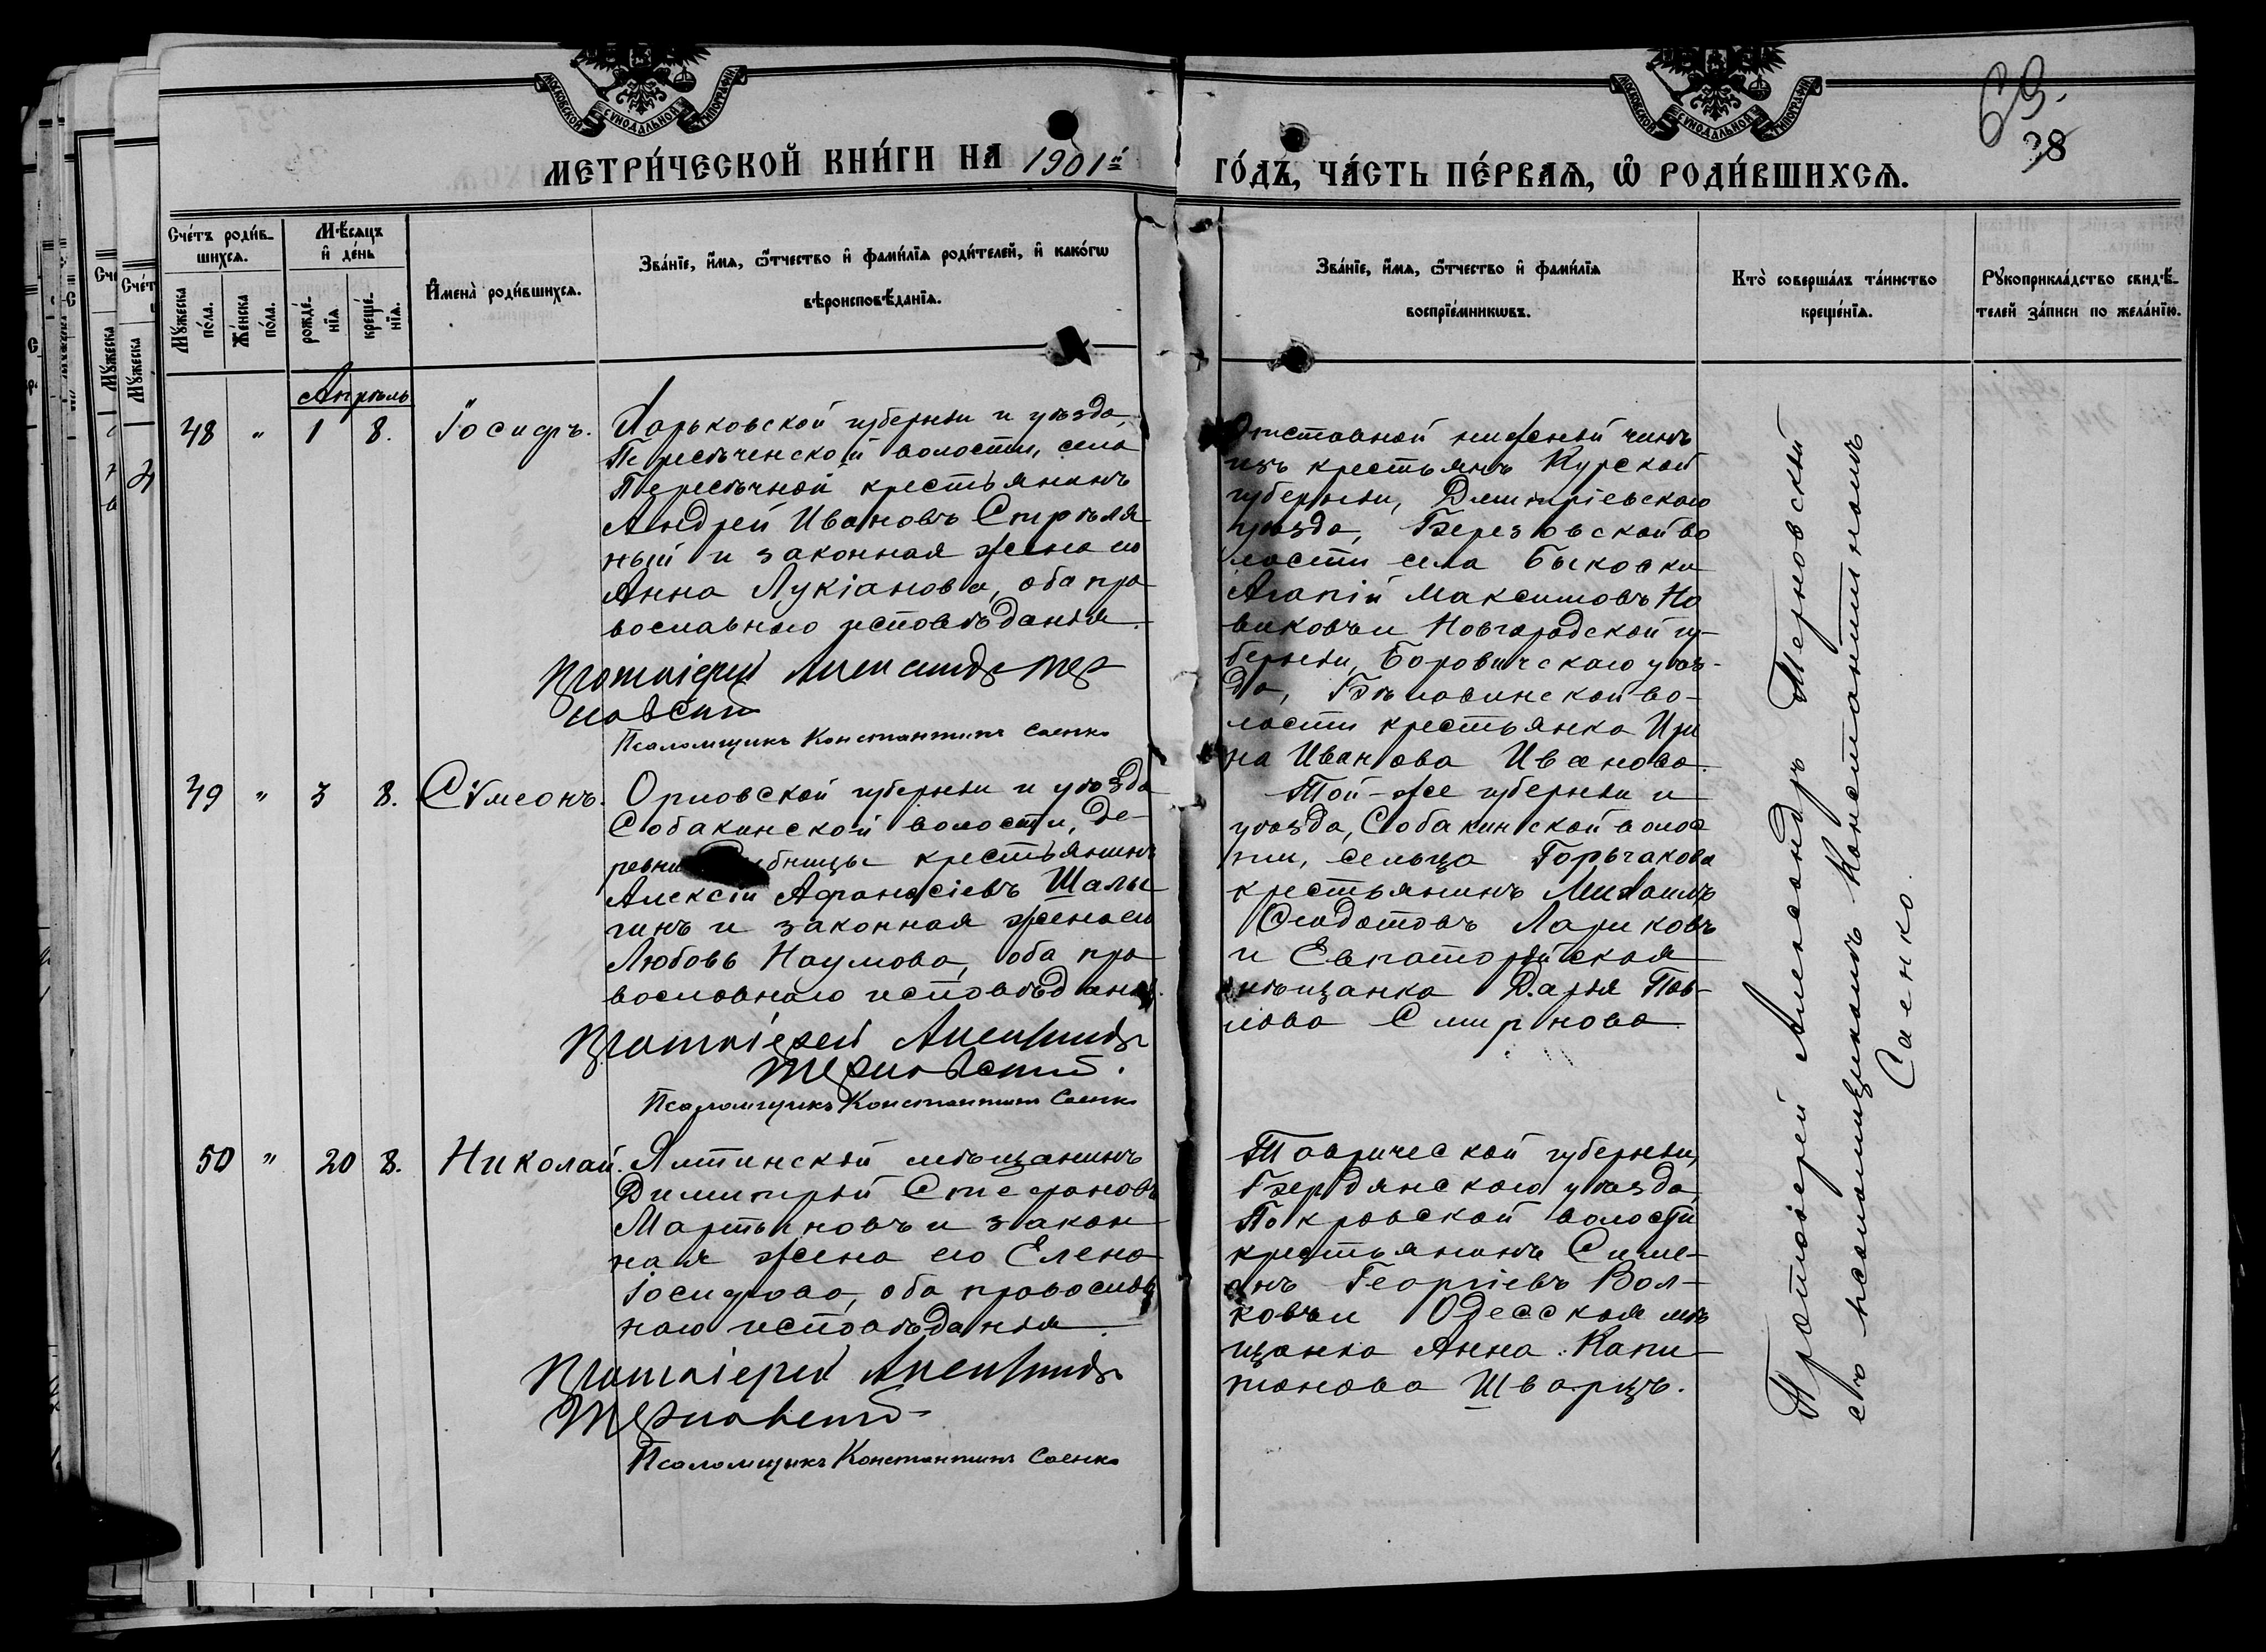 МОСКОВСКОЙ СѴНОДАЛЬНОЙ ТИПОГРАФІИ
МОСКОВСКОЙ СѴНОДАЛЬНОЙ ТИПОГРАФІИ
69.
38
МЕТРИ́ЧЕСКОЙ КНИ́ГИ НА 1901й
ГО́ДЪ, ЧА́СТЬ ПЕ́РВАѦ, Ѡ҆ РОДИ́ВШИХСѦ.
Сче́тъ роди́в-
шихсѧ.
Мꙋ́жеска
по́ла.
Же́нска
по́ла.
Мѣ́сѧцъ
и҆ де́нь
рожде́-
нїѧ
креще́-
нїѧ.
И҆мена̀ роди́вшихсѧ.
Зва́нїе, и҆́мѧ, ѻ҆́тчество и҆ фами́лїѧ роди́телей, и҆ како́гѡ
вѣроисповѣ́данїѧ.
Зва́нїе, и҆́мѧ, ѻ҆́тчество и҆ фами́лїѧ
воспрїе́мникѡвъ.
Кто̀ соверша́лъ та́инство
креще́нїѧ.
Рꙋкоприкла́дство свидѣ́-
телей за́писи по жела́нїю.
Апрѣль
48 " 1 8. Іосифъ.
Харьковской губерніи и уѣзда,
Пересѣченской волости, села
Пересѣчной крестьянинъ
Андрей Ивановъ Стрѣля
ный и законная жена его
Анна Лукіанова, оба пра
вославнаго исповѣданія.
Протоіерей Александръ Тер
новскій
Псаломщикъ Константинъ Саенко
Отставной нижній чинъ
изъ крестьянъ Курской
губерніи, Дмитріевскаго
уѣзда, Березовской во
лости села Быковки
Агапій Максимовъ Но
виковъ и Новгородской гу-
берніи, Боровичскаго уѣз-
да, Бѣлавинской во-
лости крестьянка Ири
на Иванова Иванова.
49 " 3 8. Сѵмеонъ.
Орловской губерніи и уѣзда
Собакинской волости, де-
ревни бницы крестьянинъ
Алексій Афанасіевъ Шалы
гинъ и законная жена его
Любовь Наумова, оба пра
вославнаго исповѣданія.
Протоіерей Александръ
Терновскій.
Псаломщикъ Константинъ Саенко
Той-же губерніи и
уѣзда, Собакинской волос
ти, сельца Горьчакова
крестьянинъ Михаилъ
Ѳеодотовъ Лариковъ
и Евпаторійская
мѣщанка Дарія Пав-
лова Смирнова.
50 " 20 8. Николай.
Ялтинскій мѣщанинъ
Димитрій Стефановъ
Мартыновъ и закон
ная жена его Елена
Іосифова, оба православ
наго исповѣданія.
Протоіерей Александръ
Терновскій
Псаломщикъ Константинъ Саенко
Таврической губерніи,
Бердянскаго уѣзда,
Покровской волости
крестьянинъ Симе-
онъ Георгіевъ Вол-
ковъ и Одесская мѣ
щанка Анна Капи-
тонова Шварцъ.
Протоіерей Александръ Терновскій
съ псаломщикомъ Константиномъ
Саенко.